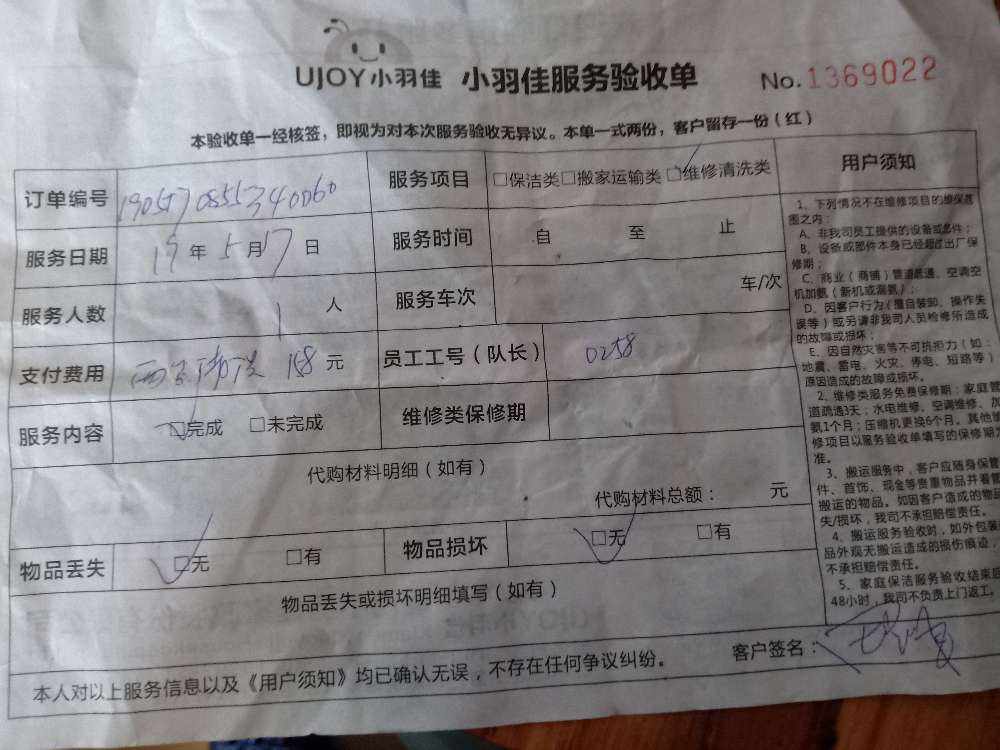 UJOY小羽佳 小羽佳服务验收单 No. 1369022
本验收单一经核签，即视为对本次服务验收无异议。本单一式两份，客户留存一份（红）
订单编号 服务项目 □保洁类□搬家运输类□维修清洗类
服务日期 19年5月17日 服务时间 自 至 止
服务人数 1 人 服务车次 车/次
支付费用 168 元 员工工号（队长） 0258
服务内容 □完成 □未完成 维修类保修期
代购材料明细（如有）
代购材料总额： 元
物品丢失 □无 □有 物品损坏 □无 □有
物品丢失或损坏明细填写（如有）
客户签名：
本人对以上服务信息以及《用户须知》均已确认无误，不存在任何争议纠纷。
用户须知
1、下列情况不在维修项目的维保范
围之内：
A、非我司员工提供的设备或部件；
B、设备或部件本身已经超过出厂保
修期；
C、商业（商铺）管道疏通、空调空
机加氨（新机或漏氨）；
D、因客户行为（擅自装卸、操作失
误等）或另请非我司人员检修所造成
的故障或损坏；
E、因自然灾害等不可抗拒力（如：
地震、雷电、火灾、停电、短路等）
原因造成的故障或损坏。
2、维修类服务免费保修期：家庭管
道疏通3天；水电维修、空调维修、加
氨1个月；压缩机更换6个月。其他维
修项目以服务验收单填写的保修期为
准。
3、搬运服务中，客户应随身保管
件、首饰、现金等贵重物品并看管
搬运的物品。如因客户造成的物品
失/损坏，我司不承担赔偿责任。
4、搬运服务验收时，如外包装
品外观无搬运造成的损伤痕迹，
不承担赔偿责任。
5、家庭保洁服务验收结束后
48小时，我司不负责上门返工。